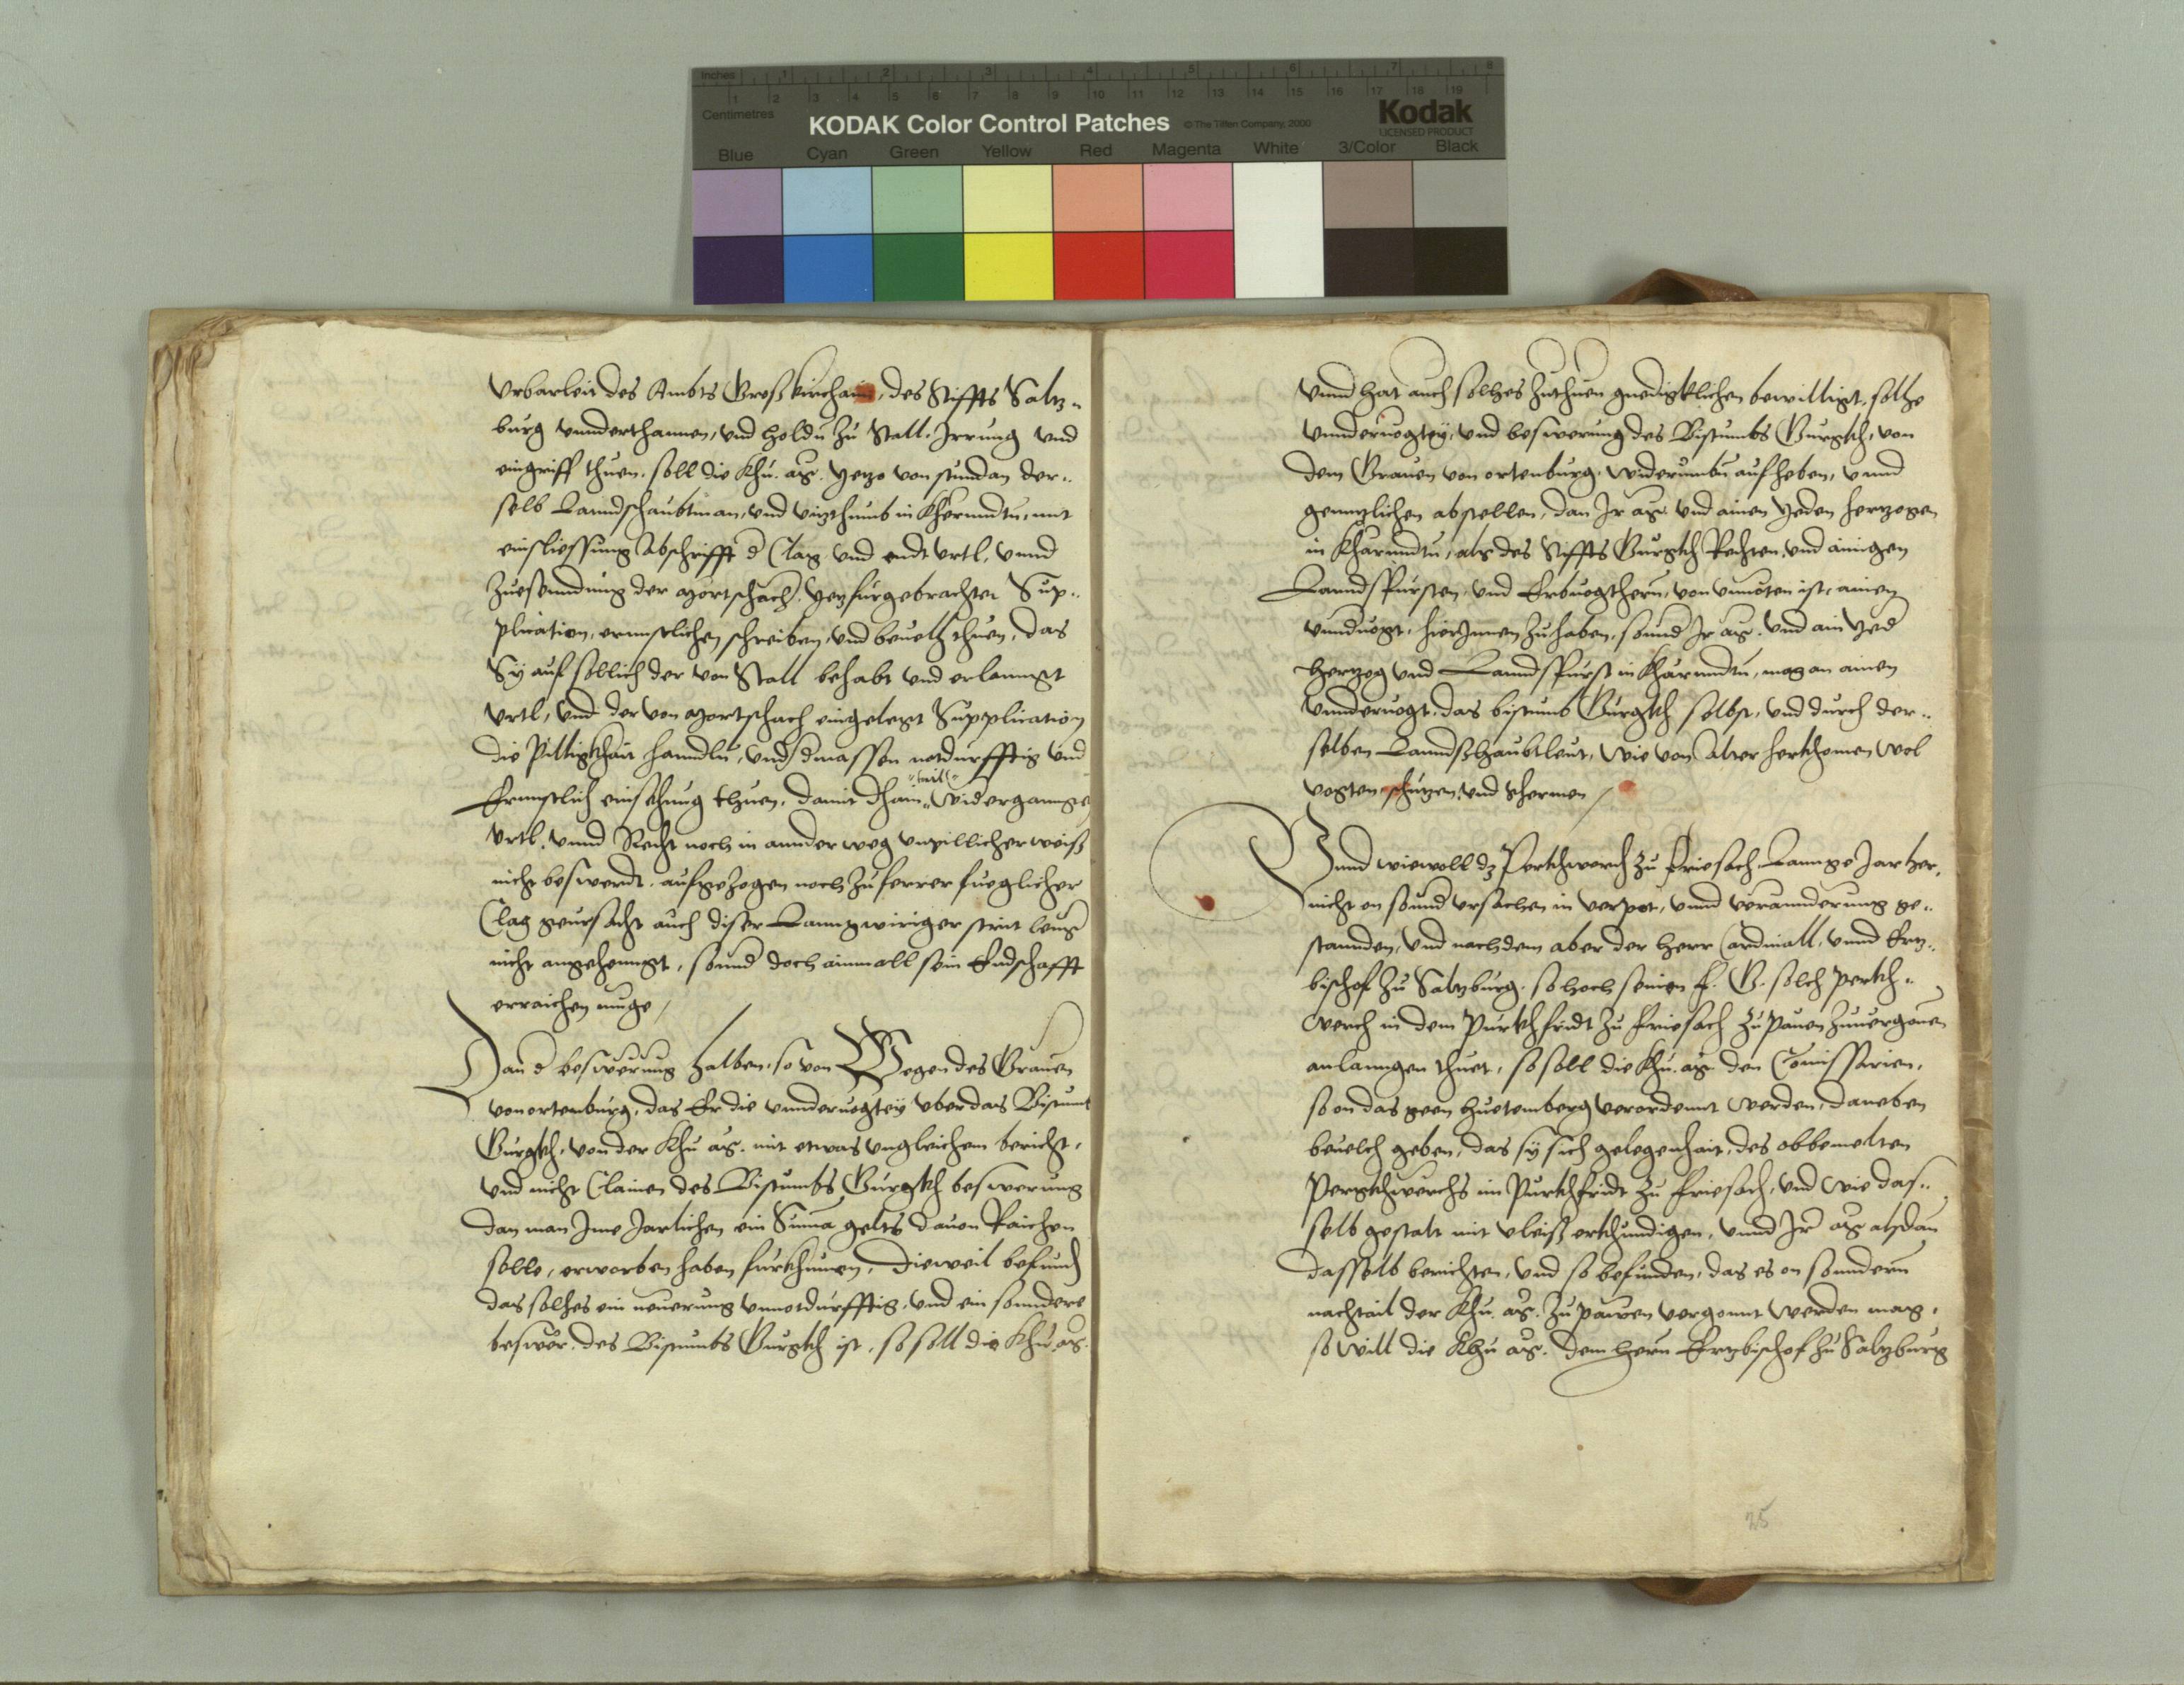 Inches 1 2 3 4 5 6 7 8
Centimetres 1 2 3 4 5 6 7 8 9 10 11 12 13 14 15 16 17 18 19
KODAK Color Control Patches © The Tiffen Company, 2000 Kodak
LICENSED PRODUCT
Blue Cyan Green Yellow Red Magenta White 3/Color Black
Vrbarleit des Ambts Großkirchaim, des Stiffts Saltz-
burg vnnderthannen, vnd holdn zu Stall, Irrung vnd
eingriff thuen. soll die Khu. Mt. yetzo von stundan der-
selb Lanndshaubtman, vnd vitzthumb in Khernndtn, mit
einsliessung Abschrifft d Clag vnd endt vrtl, vnnd
zuesenndung der Mortschach yetzfurgebrachten Sup-
plication, ernnstlichen schreiben, vnd beuelh thuen, das
Sy auf sollich der von Stall behabt vnd erlanngt
vrtl, vnd der von Mortschach eingelegt Supplication
die Pilligkhait hanndln, vnd dmassen notdurfftig vnd
Ernnstlich einsehung thuen, damit dhain tail wider ergannge
vrtl. vnnd Recht noch in annder weg vnpillicher weiß
nicht beswerdt. aufgezogen noch zuferrer fueglicher
Clag geursacht auch diser Lanngwiriger strit leng
nicht angehenngt, sonnd doch ainmall sein Endschafft
erraichen muge /
Dan d beswerung halben, so von Wegen des Grauen
von ortenburg, das Er die vnnderuogtey vber das Bistumb
Gurgkh, von der Khu Mt. mit etwas vngleichem bericht,
vnd nicht Clainen des Bistumbs Gurgkh beswerung
dan man Ime Jarlichen ein Suma gelts dauon Raichen
solle, erworben haben furkhumen, dieweil befund
das solhes ein neuerung vnnotdurfftig, vnd ein sonndere
beswer. des Bistumbs Gurgkh ist, so soll die Khu. Mt.
vnnd hat auch solhes zuthuen gnedigklichen bewilligt, solhe
vnnderuogtey, vnd beswerung des Bistumbs Gurgkh, von
dem Grauen von ortenburg, widerumbn aufheben, vnnd
genntzlichen abstellen, dan Ir Mt. vnd ainen yeden hertzogen
in Kharnndtn, als des Stiffts Gurgkh Rechten, vnd ainigen
Lanndsfursten, vnd Erbuogthern, von vnnoten ist, ainen
vnnduogt, hierInnen zuhaben, sonnd Ir Mt. vnd ain yed
hertzog vnd Lanndsfurst in Kharnndtn, mag an ainen
vnnderuogt, das bistumb Gurgkh selbs, vnd durch der-
selben Lanndshaubtleut, wie von Alter herkhomen wol
vogten schutzen vnd schermen /
Vnnd wiewoll dz Perkhwerch zu Friesach Lannge Jar her,
nicht on sonnd vrsachen in verpot, vnnd verannderung ge-
stannden, vnd nachdem aber der herr Cardinall, vnnd Ertz-
bischof zu Saltzburg. so hoch seinen F. G. solch perkh-
werch in dem purkhfridt zu Friesach zu pauen zuuergonen
anlanngen thuet, so soll die Khu. Mt. den Comissarien,
so on das geen huetemberg verordennt werden, daneben
beuelch geben, das sy sich gelegenhait, des obbemelten
Pergkhwerchs im Purkhfridt zu Friesach, vnd wie das-
selb gestalt mit vleiß erkhundigen, vnnd Ir Mt alsdan
dasselb berichten, vnd so befunden, das es on sonndern
nachtail der Khu. Mt. zu pawen vergonnt werden mag,
so will die Khu Mt. dem hern Ertzbischof zu Saltzburg
25